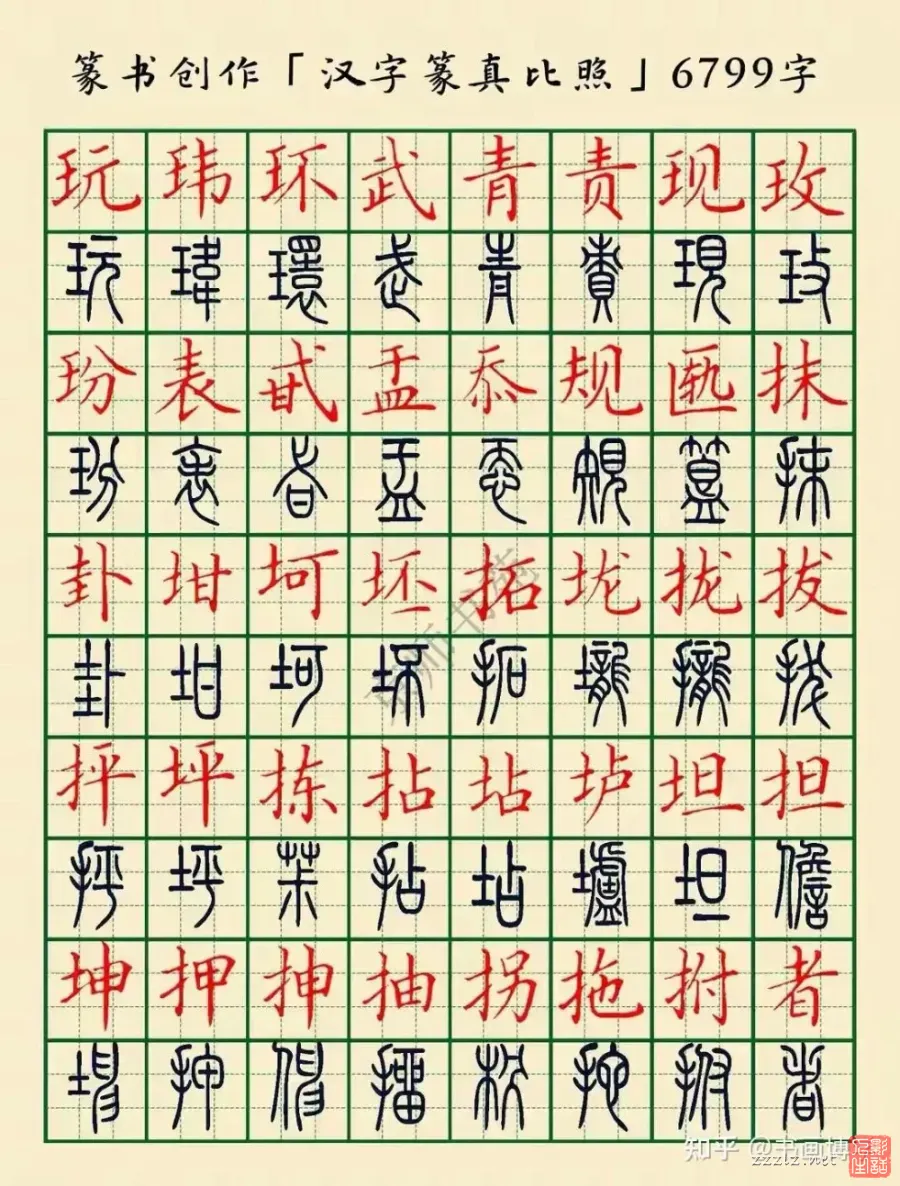 篆书创作「汉字篆真比照」6799字
玩 玮 环 武 青 责 现 玫
玩 瑋 環 武 青 責 現 玫
玢 表 甙 盂 忝 规 匦 抹
玢 表 盂 忝 規 簋 抹
卦 坩 坷 坯 拓 垅 拢 拔
卦 坩 坷 拓 壠 攏 拔
抨 坪 拣 拈 坫 垆 坦 担
抨 坪 拈 坫 壚 坦 儋
坤 押 抻 抽 拐 拖 拊 者
押 拊 者
知乎 @书画博